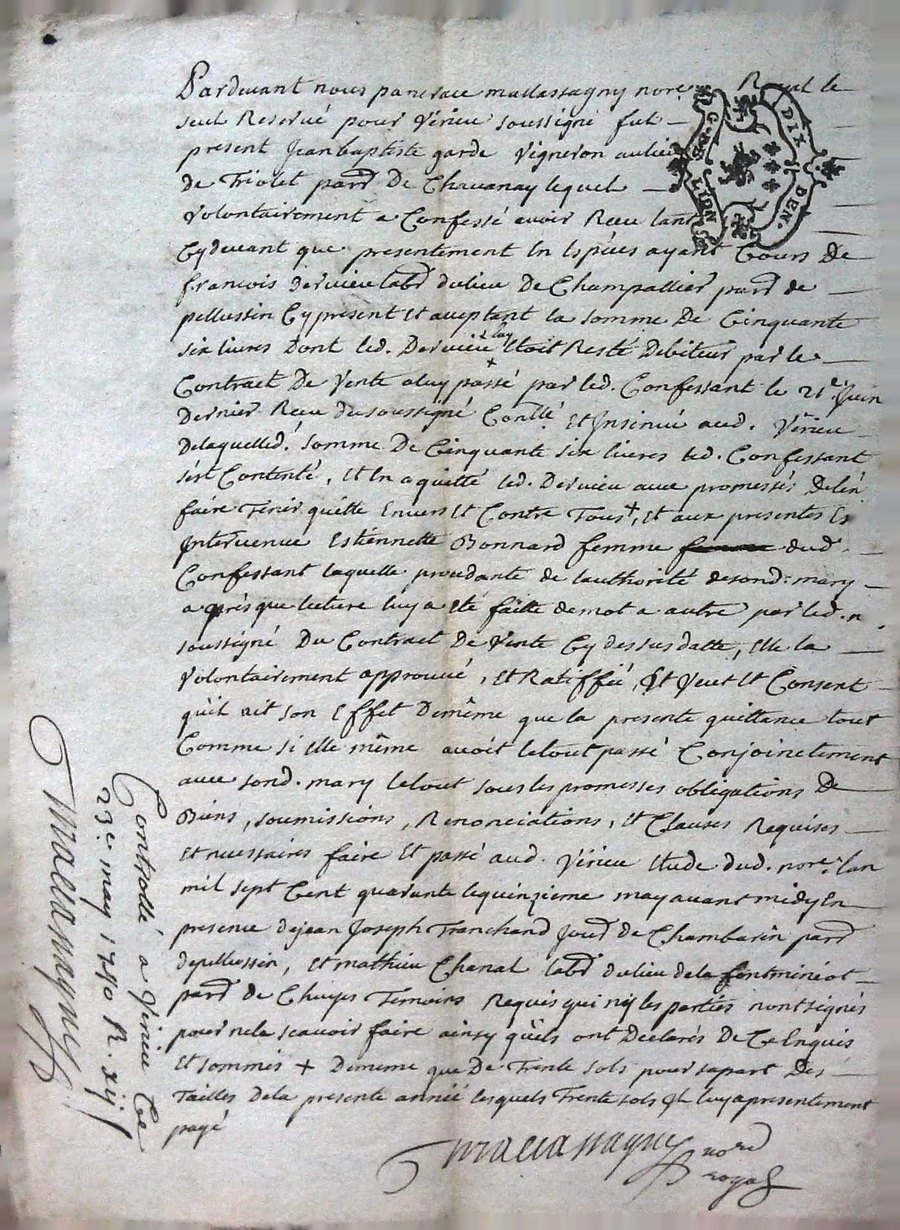 Pardevant nous pancrace mallassagny nore Royal le
seul Reservé pour Vérieu soussigné fut
present Jean baptiste garde vigneron au lieu
de Triolet parr de Chavanay lequel
volontairement a Confessé avoir Receu tant
Cydevant que presentement En Espéces ayant Cours De
francois dervieu labr du lieu De Champallier parr de
pellussin Cy present Et acceptant la somme De Cinquante
six livres Dont led. Dervieu luy Etoit Resté Debiteur par le
Contract De Vente a luy passé par led. Confessant le 21e Juin
Dernier Receu du soussigné Conllé Et Insinué aud. Vérieu
De laquelled. somme De Cinquante six livres led. Confessant
s'est Contenté, Et En a quitté led. Dervieu avec promesses De l'en
faire Tenir quitte Envers Et Contre Tous +, Et aux presentes Es
Intervenue Estiennette Bonnard femme dud.
Confessant laquelle procedante de l'authorité de sond. mary
apres que lecture luy a Eté faitte de mot a autre par led. n
soussigné Du Contract De Vente Cy dessus datté, Elle la
volontairement approuvé, Et Ratiffié, Et Veut Et Consent
qu'il ait son Effet De même que la presente quittance tout
Comme si Elle même avoit le tout passé Conjoinctement
avec sond. mary le tout sous les promesses obligations De
Biens, soumissions, Renonciations, Et Clauses Requises
Et necessaires faire Et passé aud. Vérieu Etude dud. nore. lan
mil sept Cent quarante le quinzieme may avant midy En
presence de jean Joseph Tranchand Jourd De Chambasin parr
de pellussin, Et mathieu Chanal labr du lieu de la fontminéot
parr de Chuyes Temoins Requis qui n'y les parties n'ont signés
pour ne le scavoir faire ainsy qu'ils ont Declarés De Ce Enquis
Et sommés + De meme que De Trente sols pour sa part Des
Tailles de la presente année lesquels Trente sols Il luy a presentement
payé
Mallassagny nore
royal
Controllé a Virieu Ce
23e may 1740 R. xij s
Mallassagny
G. DE LION
DIX DEN.